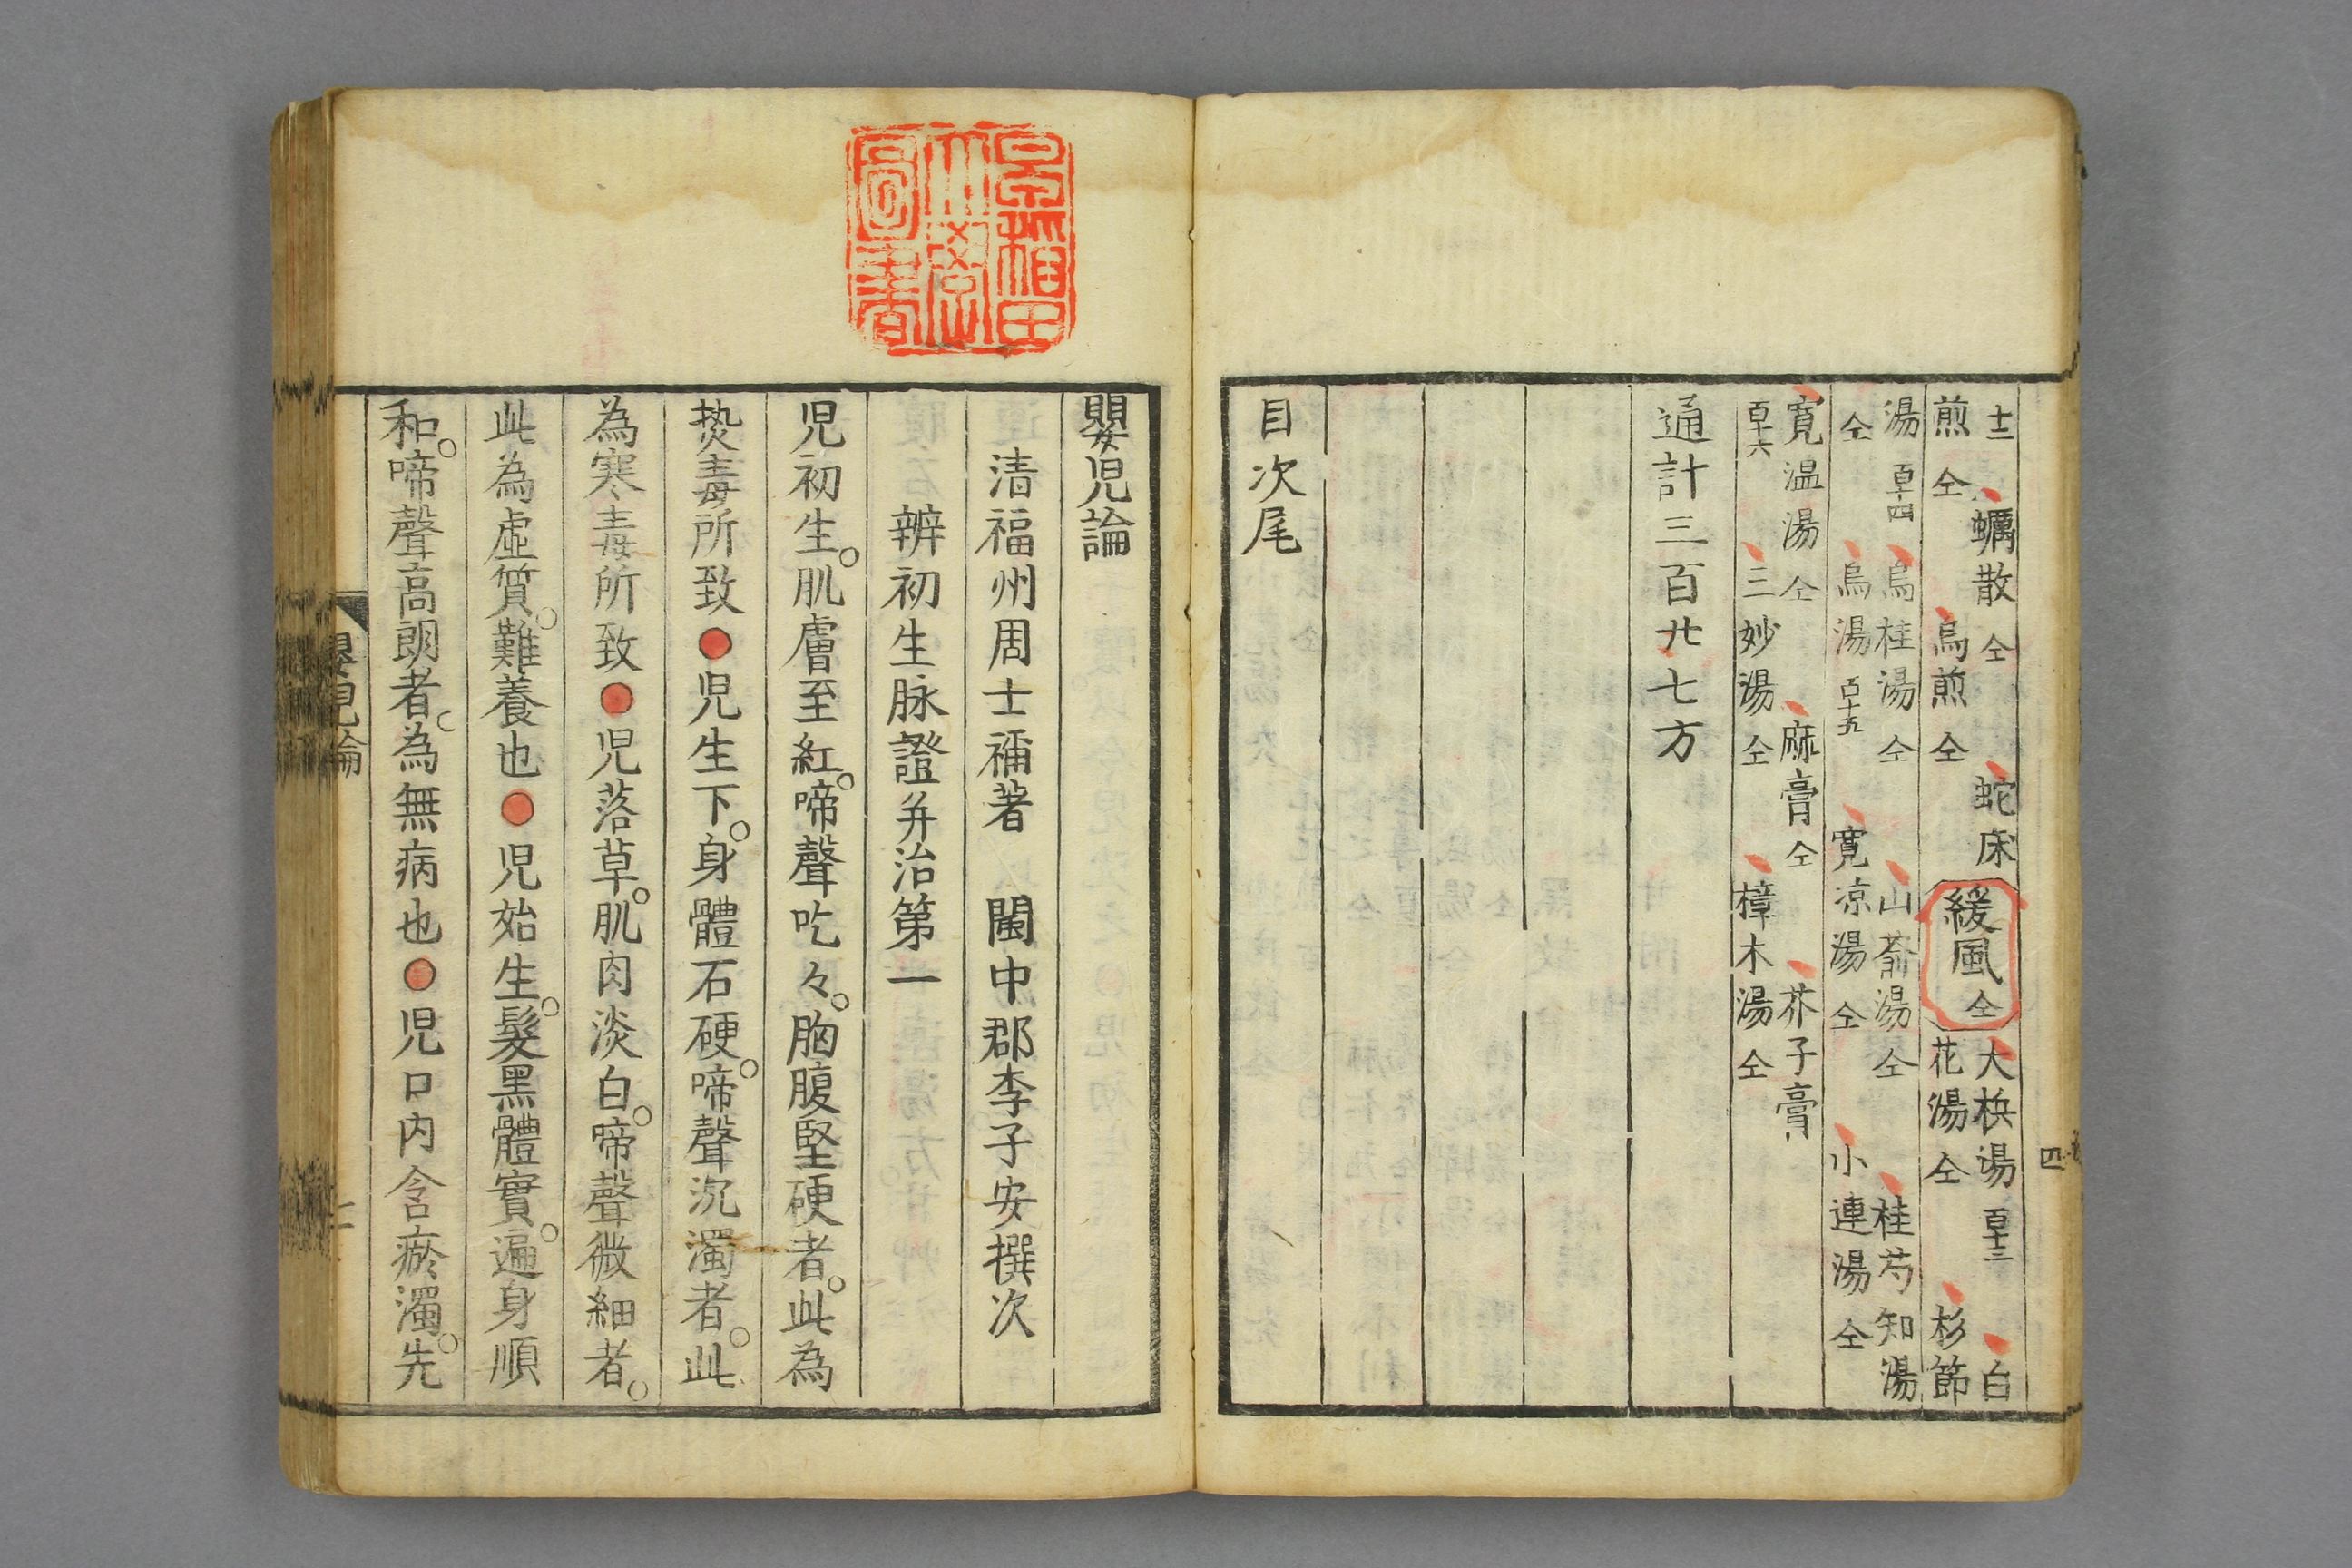 十二 蠣散 仝 蛇床
煎 仝 烏煎 仝
緩風 仝
大柍湯 百十三 白
花湯 仝 杉節
湯 百十四 烏桂湯 仝 山薢湯 仝 桂芍知湯
仝 烏湯 百十五 寛凉湯 仝 小連湯 仝
寛温湯 仝 麻膏 仝 芥子膏
百十六 三妙湯 仝 樟木湯 仝
通計三百廿七方
目次尾
四
早稲田大學圖書
嬰児論
清福州周士禰著 閩中郡李子安撰次
辨初生脉證并治第一
児初生。肌膚至紅。啼聲吃々。胸腹堅硬者。此為
𤍠毒所致●児生下。身體石硬。啼聲沉濁者。此
為寒毒所致●児落草。肌肉淡白。啼聲微細者。
此為虛質。難養也●児始生。髮黑體實。遍身順
和。啼聲高朗者。為無病也●児口内含瘀濁。先
嬰児論